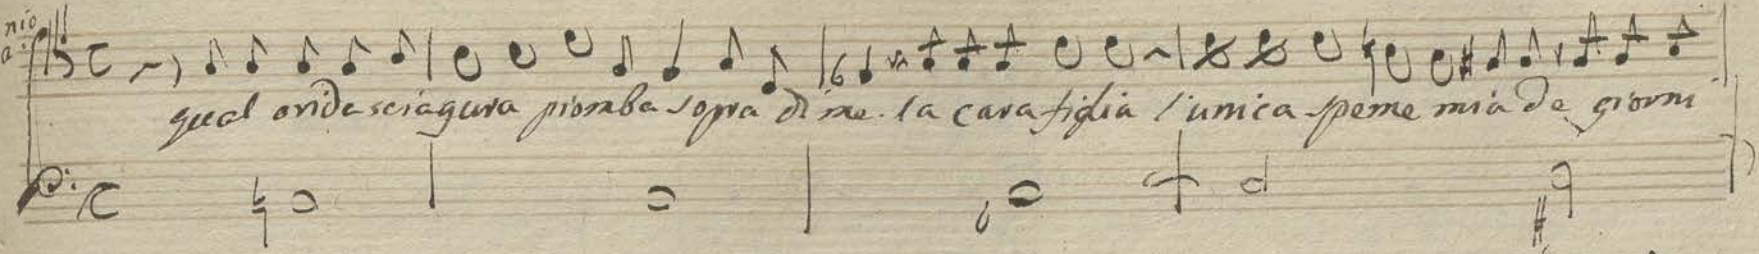 nio
a:
qual orida sciagura piomba sopra di me. la cara figlia l'unica speme mia de giorni